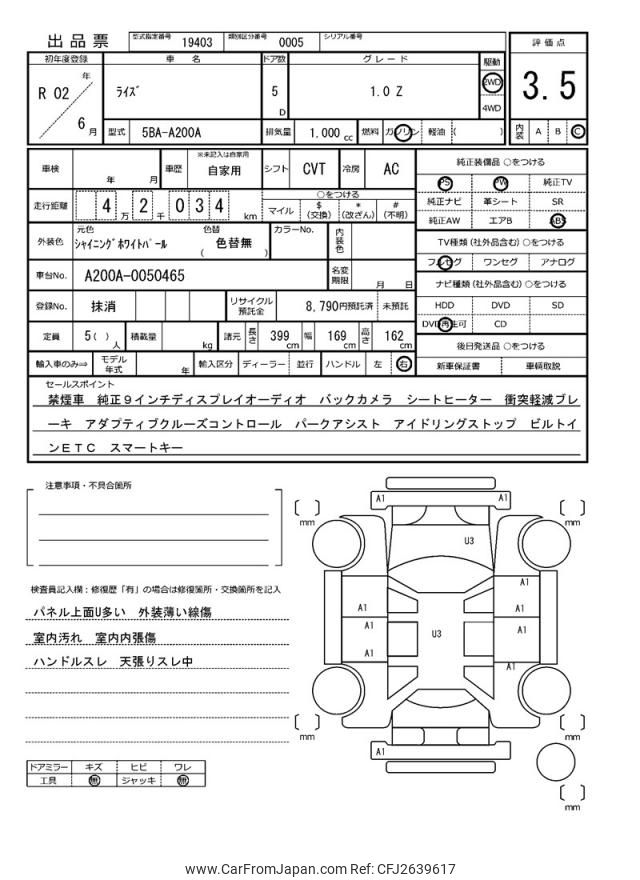 出品票 型式指定番号 19403 類別区分番号 0005 シリアル番号
評価点
3.5
内装 A B C
初年度登録 車名 ドア数 グレード 駆動
R 02 年 6 月 ライズ 5 D 1.0 Z 2WD 4WD
型式 5BA-A200A 排気量 1.000 cc 燃料 ガソリン 軽油 ( )
車検 年 月 車歴 ※未記入は自家用 自家用 シフト CVT 冷房 AC
走行距離 4 万 2 千 0 3 4 km
○をつける
マイル $(交換) *(改ざん) #(不明)
外装色 元色 シャイニングホワイトパール 色替 ( 色替無 ) カラーNo. 内装色
車台No. A200A-0050465 名変期限 月 日
登録No. 抹消 リサイクル預託金 8,790円預託済 未預託
定員 5( )人 積載量 kg 諸元 長さ 399 cm 幅 169 cm 高さ 162 cm
輸入車のみ⇒ モデル年式 年 輸入区分 ディーラー 並行 ハンドル 左 右
純正装備品 ○をつける
PS PW 純正TV
純正ナビ 革シート SR
純正AW エアB ABS
TV種類(社外品含む) ○をつける
フルセグ ワンセグ アナログ
ナビ種類(社外品含む) ○をつける
HDD DVD SD
DVD再生可 CD
後日発送品 ○をつける
新車保証書 車輌取説
セールスポイント
禁煙車 純正9インチディスプレイオーディオ バックカメラ シートヒーター 衝突軽減ブレ
ーキ アダプティブクルーズコントロール パークアシスト アイドリングストップ ビルトイ
ンETC スマートキー
注意事項・不具合箇所
検査員記入欄:修復歴「有」の場合は修復箇所・交換箇所を記入
パネル上面U多い 外装薄い線傷
室内汚れ 室内内張傷
ハンドルスレ 天張りスレ中
ドアミラー キズ ヒビ ワレ
工具 無 ジャッキ 無
A1 A1
[ ] mm [ ] mm
U3
A1 A1
A1 U3 A1
A1 A1
[ ] mm [ ] mm
A1
[ ] mm
www.CarFromJapan.com Ref: CFJ2639617